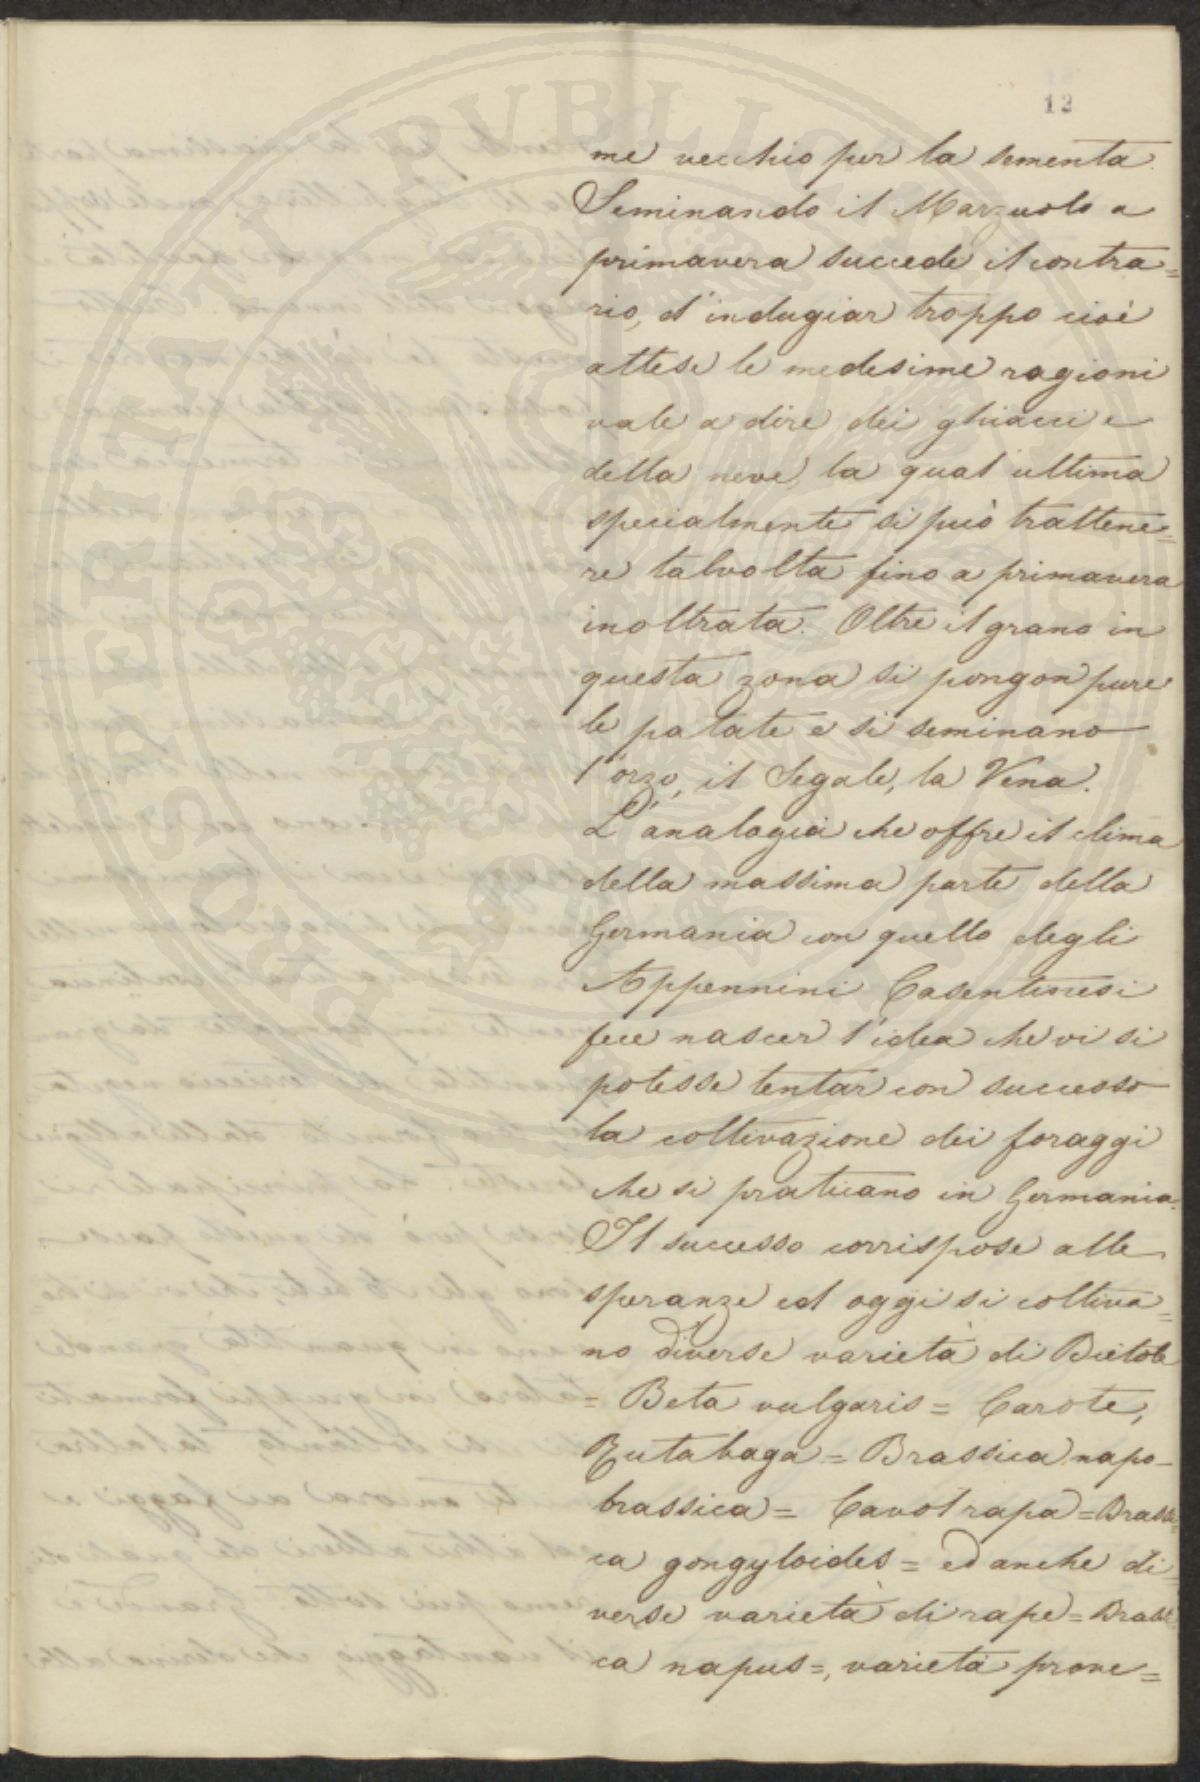 12
me vecchio per la sementa.
Seminando il Marzuolo a
primavera succede il contra=
rio, d'indugiar troppo cioè
attese le medesime ragioni
vale a dire dei ghiacci e
della neve, la qual ultima
specialmente si può trattene=
re talvolta fino a primavera
inoltrata. Oltre il grano in
questa zona si pongon pure
le patate e si seminano
l'orzo, il Segale, la Vena.
L'analogia che offre il clima
della massima parte della
Germania con quello degli
Appennini Casentinesi
fece nascer l'idea che vi si
potesse tentar con successo
la coltivazione dei foraggi
che si praticano in Germania.
Il successo corrispose alle
speranze ed oggi si coltiva=
no diverse varietà di Bietole
= Beta vulgaris = Carote,
Rutabaga = Brassica napo-
brassica = Cavol rapa = Brassi=
ca gongyloides = ed anche di
verse varietà di rape = Brassi
ca napus =, varietà prove=
PROSPERITATI PVBLICAE